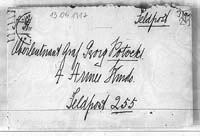 13.04.1917
Feldpost
Oberleutnant Graf Georg Potocki
4 Armee Kmdo.
Feldpost 255